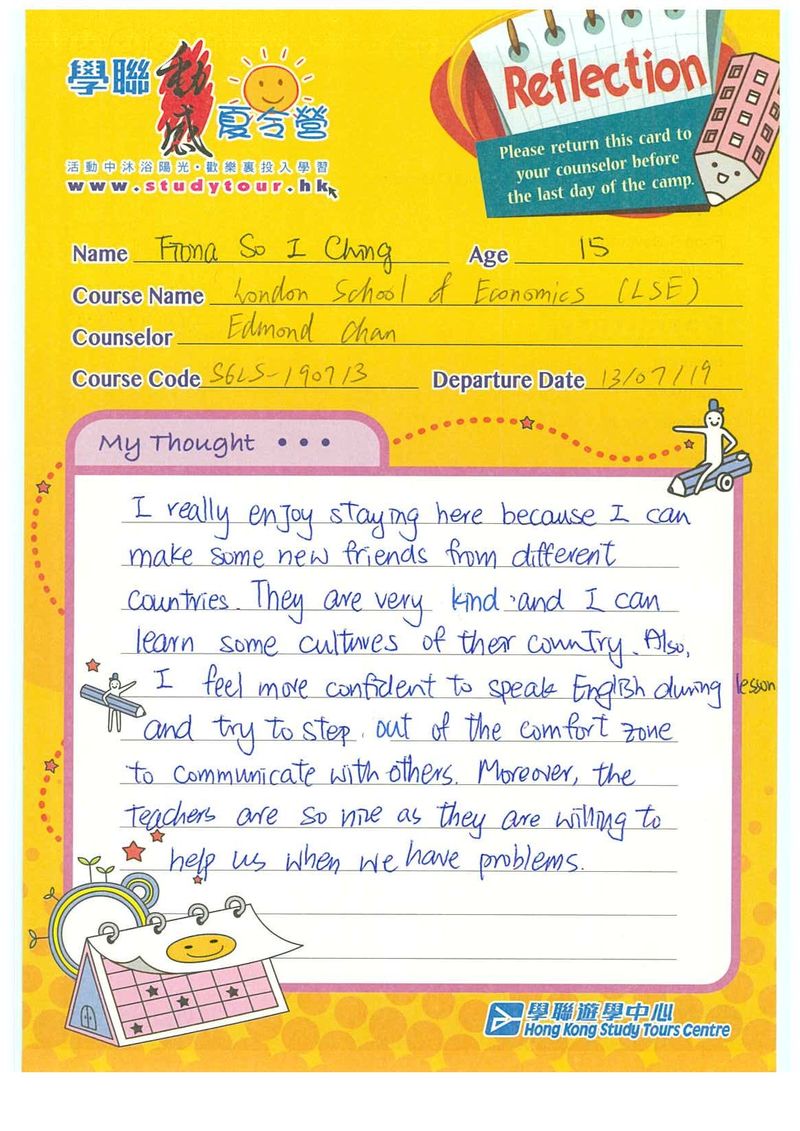 學聯 動感 夏令營
活動中沐浴陽光・歡樂裏投入學習
www.studytour.hk
Reflection
Please return this card to
your counselor before
the last day of the camp.
Name Fiona So I Ching Age 15
Course Name London School of Economics (LSE)
Counselor Edmond Chan
Course Code SGLS-190713 Departure Date 13/07/19
My Thought • • •
I really enjoy staying here because I can
make some new friends from different
countries. They are very kind and I can
learn some cultures of their country. Also,
I feel more confident to speak English during lesson
and try to step out of the comfort zone
to communicate with others. Moreover, the
teachers are so nice as they are willing to
help us when we have problems.
學聯遊學中心
Hong Kong Study Tours Centre